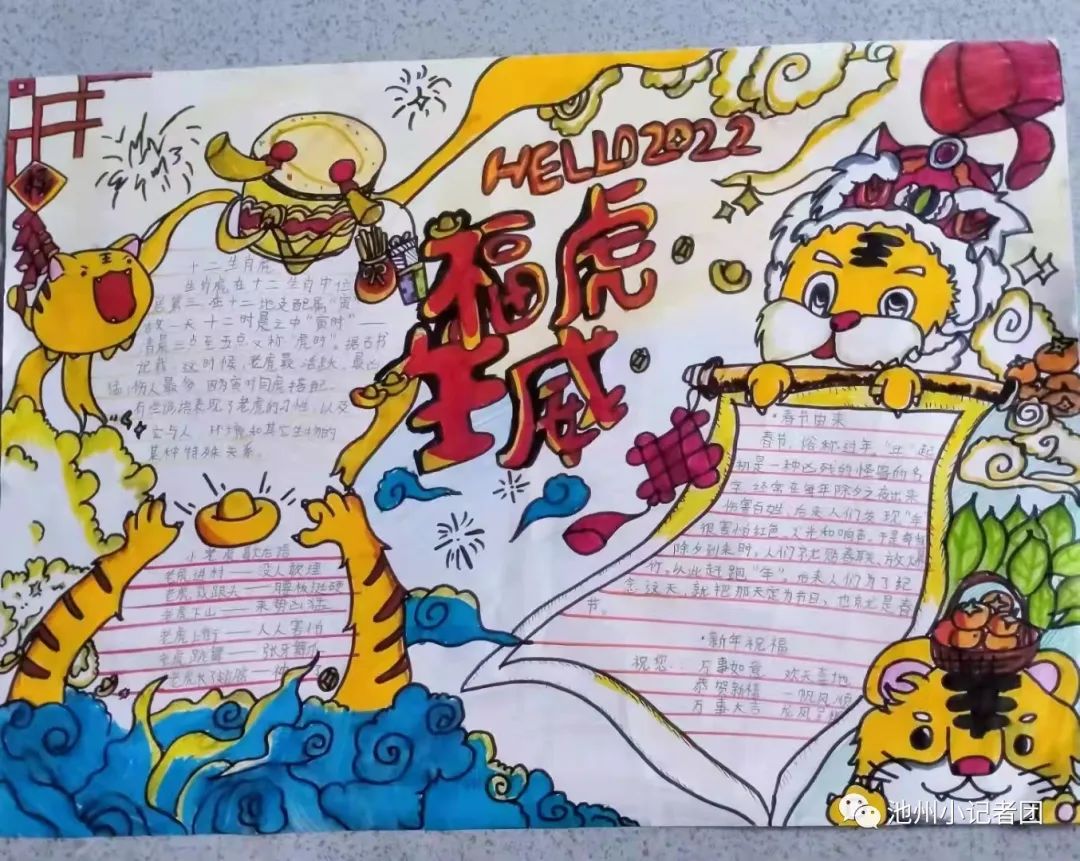 HELLO2022
福虎
生威
十二生肖虎
生肖虎在十二生肖中位
居第三,在十二地支配属"寅"
故一天十二时辰之中"寅时"——
清晨三点至五点又称"虎时"。据古书
记载,这时候,老虎最活跃、最凶
猛,伤人最多
它与人、环境和其它生物的
某种特殊关系。
小老虎歇后语
老虎进村——没人敢理
老虎下山——来势凶猛
老虎上街——人人害怕
老虎跳舞——张牙舞爪
·春节由来
春节,俗称过年。"年"起
初是一种凶残的怪兽的名
字,经常在每年除夕之夜出来
伤害百姓,后来人们发现"年"
很害怕红色、火光和响声。于是每当
除夕到来时,人们家上贴春联、放火爆
竹,从此赶跑"年"。而来人们为了纪
念这天,就把那天定为节日、也就是春
节。
·新年祝福
祝您: 万事如意 欢天喜地
恭贺新禧 一帆风顺
万事大吉 龙凤
池州小记者团